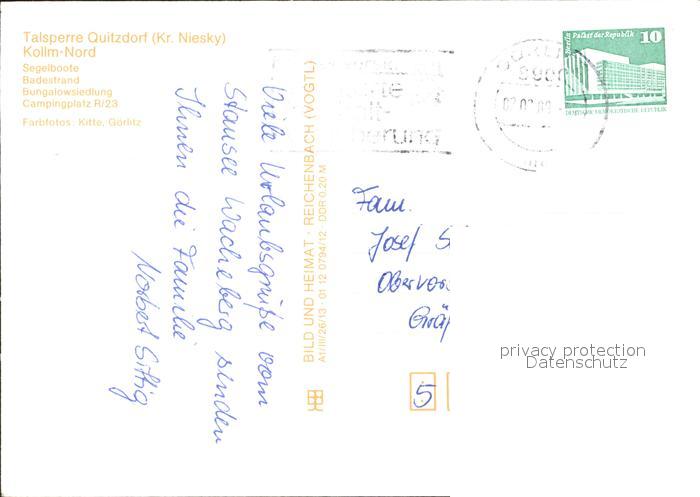 Talsperre Quitzdorf (Kr. Niesky)
Kollm-Nord
Segelboote
Badestrand
Bungalowsiedlung
Campingplatz R/23
Farbfotos: Kitte, Görlitz
Viele Urlaubsgrüße vom
Stausee Wacheberg senden
Ihnen die Familie
Norbert Sittig
BILD UND HEIMAT · REICHENBACH (VOGTL)
A1/III/26/13 · 01 12 0794/12 · DDR 0,20 M
Berlin Palast der Republik 10
DEUTSCHE DEMOKRATISCHE REPUBLIK
Fam.
Josef S
Obervor
Gräf
5
privacy protection
Datenschutz